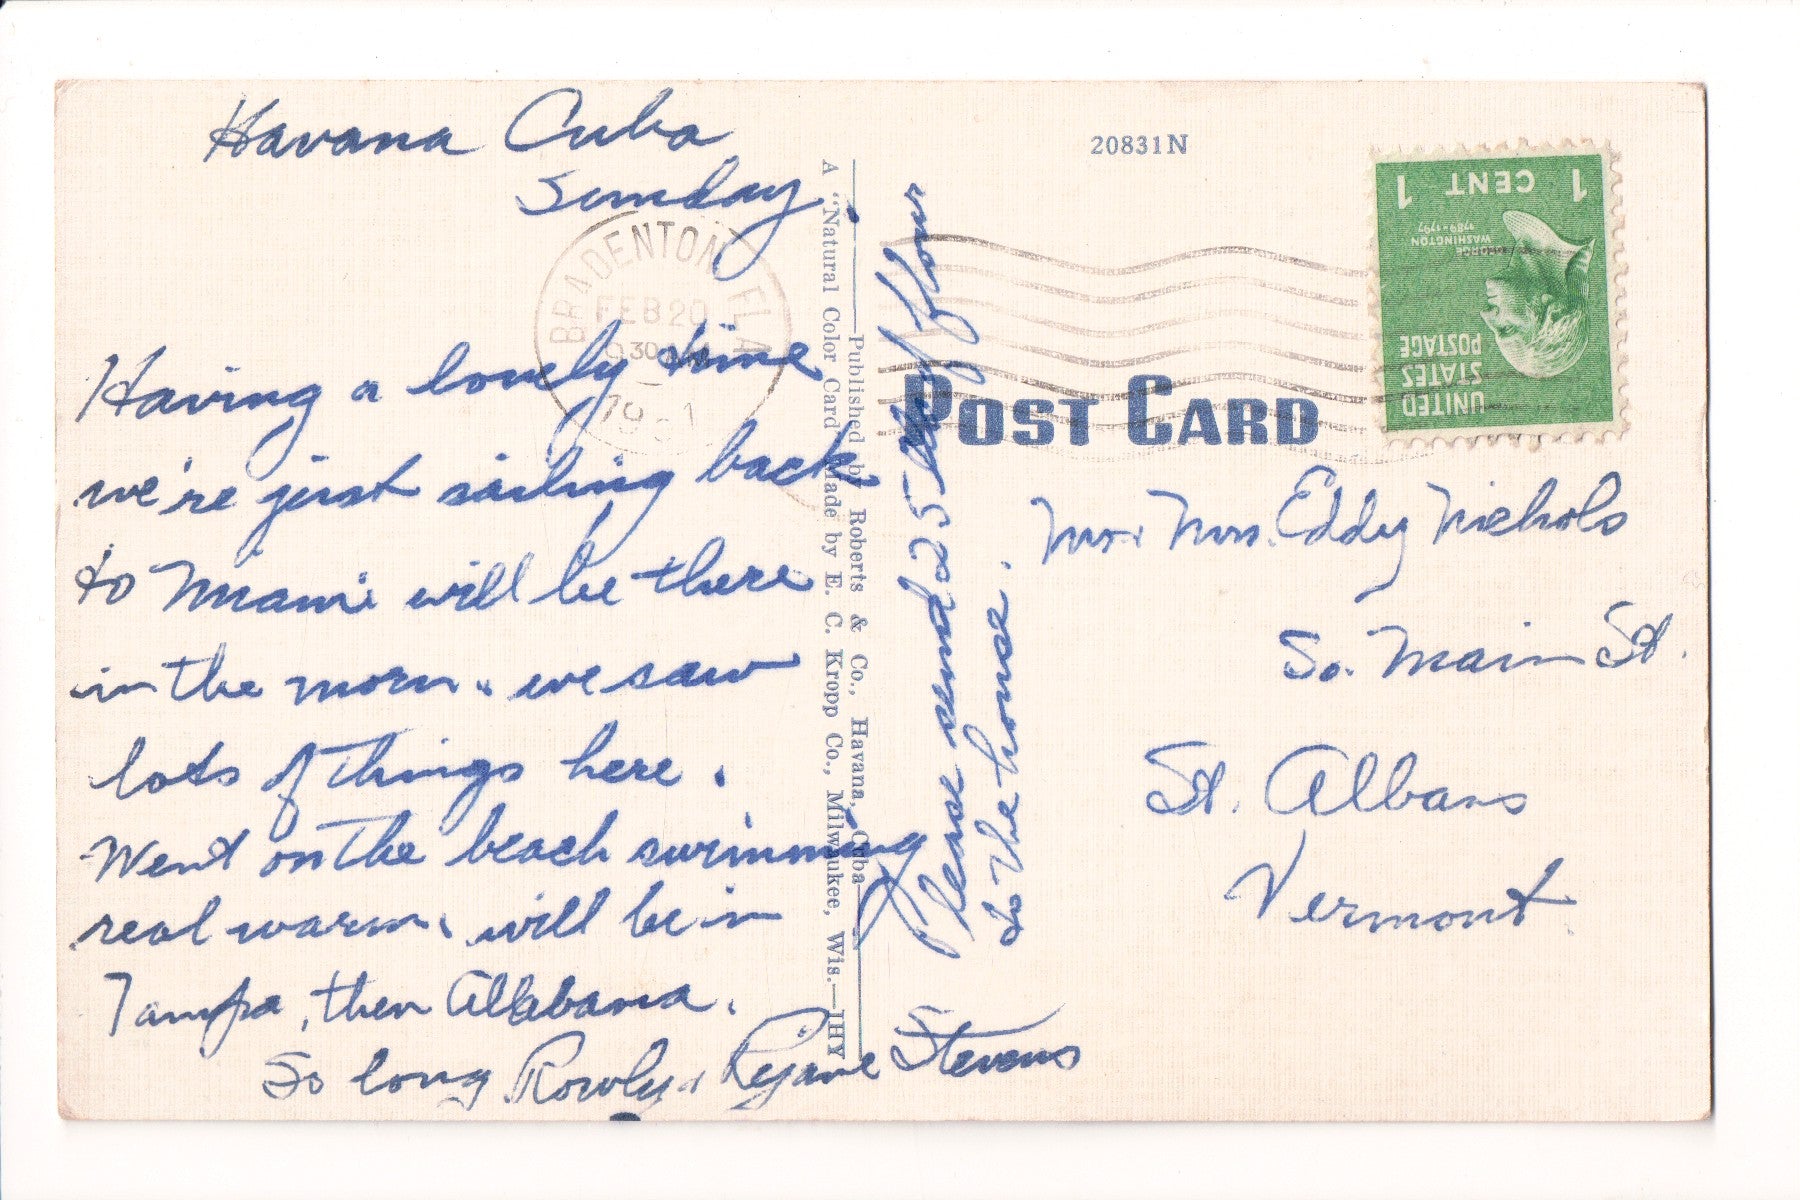 Havana Cuba
Sunday.
Having a lovely time
we're just sailing back
to Miami will be there
in the morn. we saw
lots of things here.
Went on the beach swimming
real warm. will be in
Tampa, then Allabama.
So long Rowly & Rejane Stevens
Please send 25 lbs of flour
to the house.
A "Natural Color Card" Made by E. C. Kropp Co., Milwaukee, Wis.—JHY
Published by Roberts & Co., Havana, Cuba
BRADENTON FLA
FEB 20
9 30 AM
1951
20831N
POST CARD
1 CENT 1
GEORGE
WASHINGTON
1789-1797
UNITED
STATES
POSTAGE
Mr & Mrs. Eddy Nichols
So. Main St.
St. Albans
Vermont.